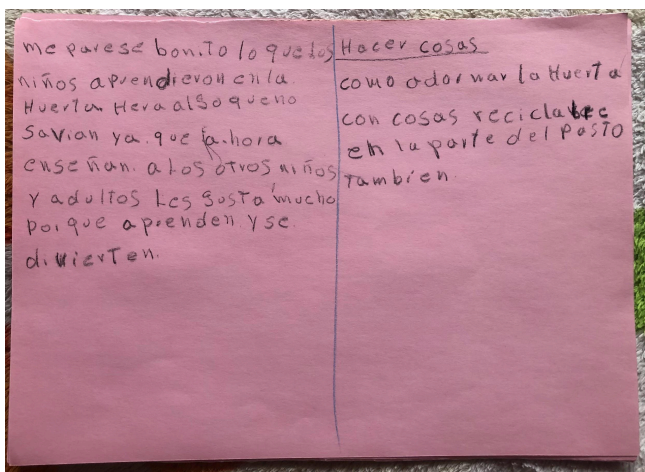 me parese bonito lo que los
niños aprendieron en la
Huerta Hera algo que no
savian ya que la hora
enseñan a Los otros niños
y adultos Les gusta mucho
porque aprenden y se
divierten.
Hacer cosas
como adornar la Huerta
con cosas reciclabre
en la parte del pasto
Tambien.